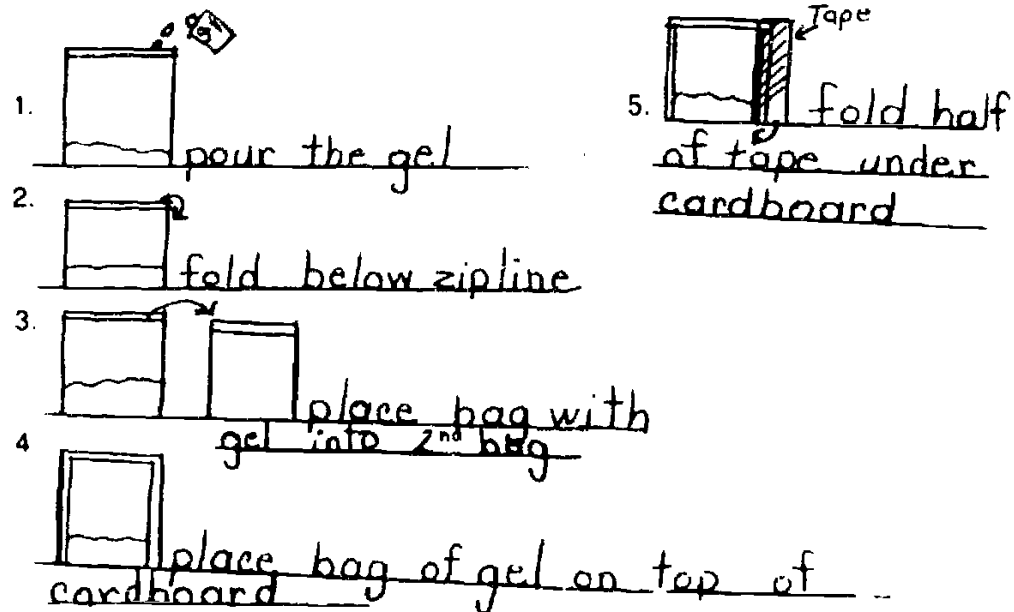 1. pour the gel
2. fold below zipline
3. place bag with
gel into 2nd bag
4 place bag of gel on top of
cardboard
Tape
5. fold half
of tape under
cardboard